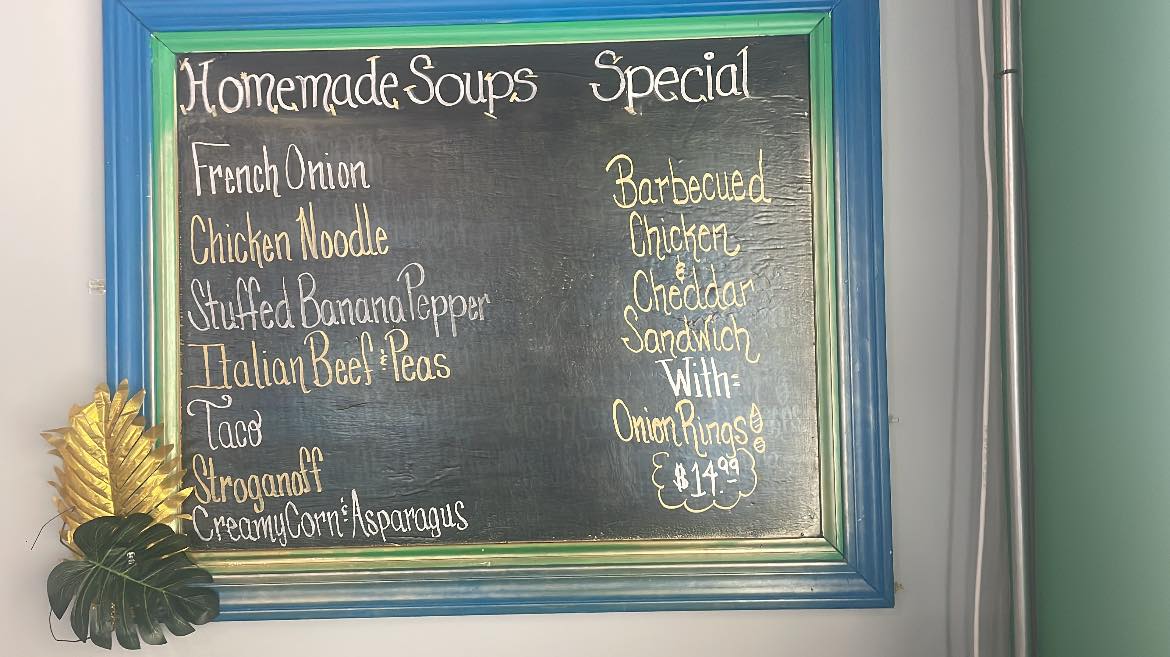 Homemade Soups
French Onion
Chicken Noodle
Stuffed Banana Pepper
Italian Beef & Peas
Taco
Stroganoff
Creamy Corn & Asparagus
Special
Barbecued
Chicken
&
Cheddar
Sandwich
With:
Onion Rings!
$14.99